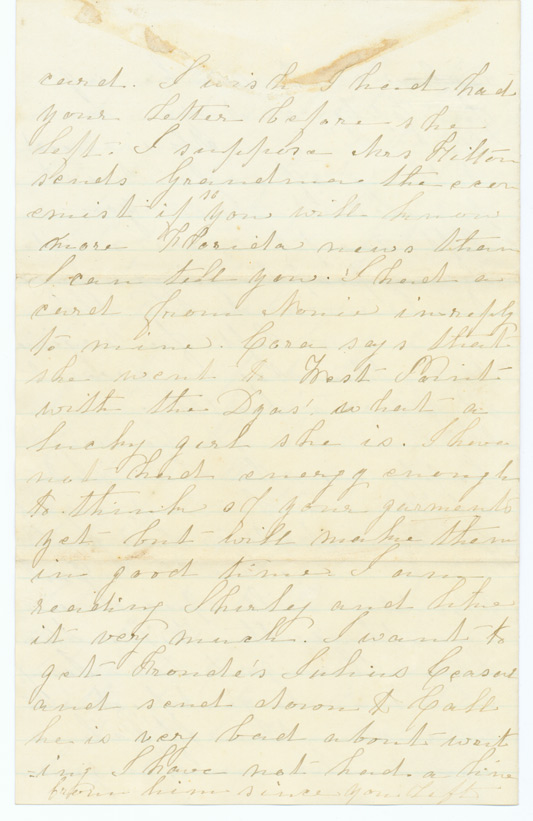 card. I wish I had had
your letter before she
left. I suppose Mrs Hilton
sends Grandma the econ
omist if so you will know
more Florida news than
I can tell you. I had a
card from Nonie in reply
to mine. Cora says that
she went to West Point
with the Dyas' what a
lucky girl she is. I have
not had energy enough
to think of your garments
yet but will make them
in good time. I am
reading Shirley and like
it very much. I want to
get Froude's Julius Ceasar
and send down to Call
he is very bad about writ
-ing I have not had a line
from him since you left